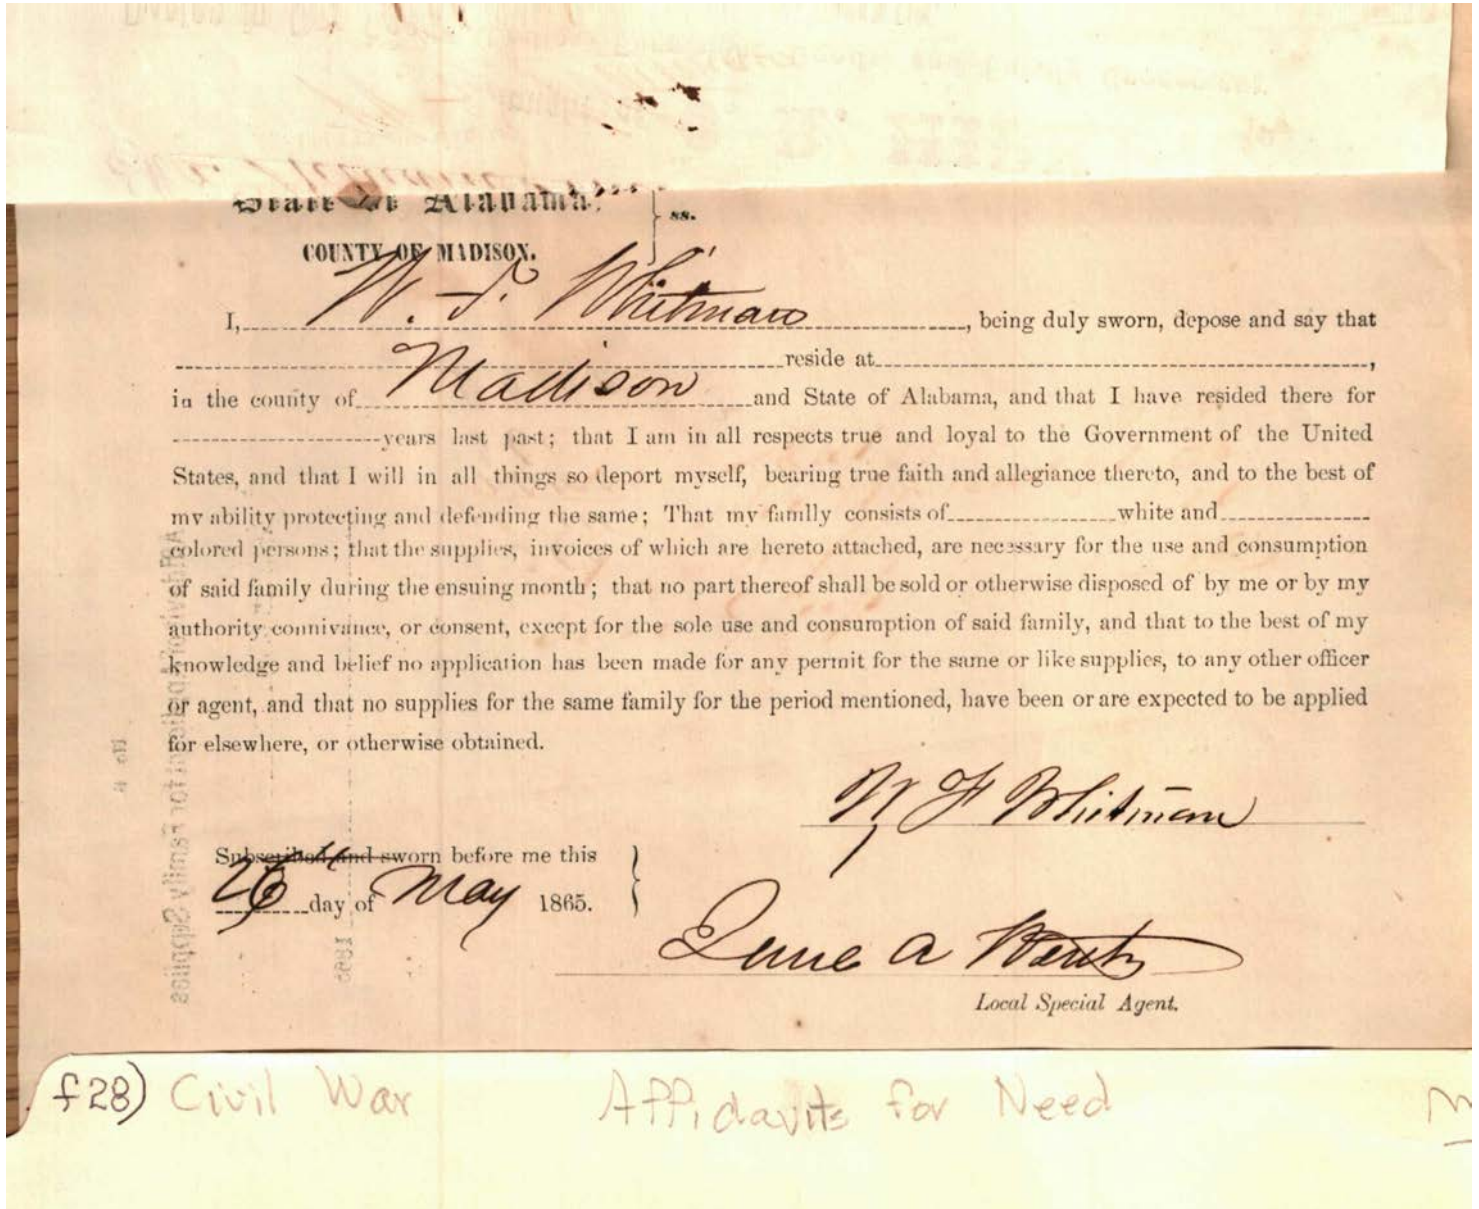 State of Alabama.
ss.
COUNTY OF MADISON.
I, W. F. Whitman, being duly sworn, depose and say that
reside at,
in the county of Madison and State of Alabama, and that I have resided there for
years last past; that I am in all respects true and loyal to the Government of the United
States, and that I will in all things so deport myself, bearing true faith and allegiance thereto, and to the best of
my ability protecting and defending the same; That my family consists of white and
colored persons; that the supplies, invoices of which are hereto attached, are necessary for the use and consumption
of said family during the ensuing month; that no part thereof shall be sold or otherwise disposed of by me or by my
authority, connivance, or consent, except for the sole use and consumption of said family, and that to the best of my
knowledge and belief no application has been made for any permit for the same or like supplies, to any other officer
or agent, and that no supplies for the same family for the period mentioned, have been or are expected to be applied
for elsewhere, or otherwise obtained.
W F Whitman
Subscribed and sworn before me this
26 day of May 1865.
A
Local Special Agent.
f28) Civil War Affidavits for Need